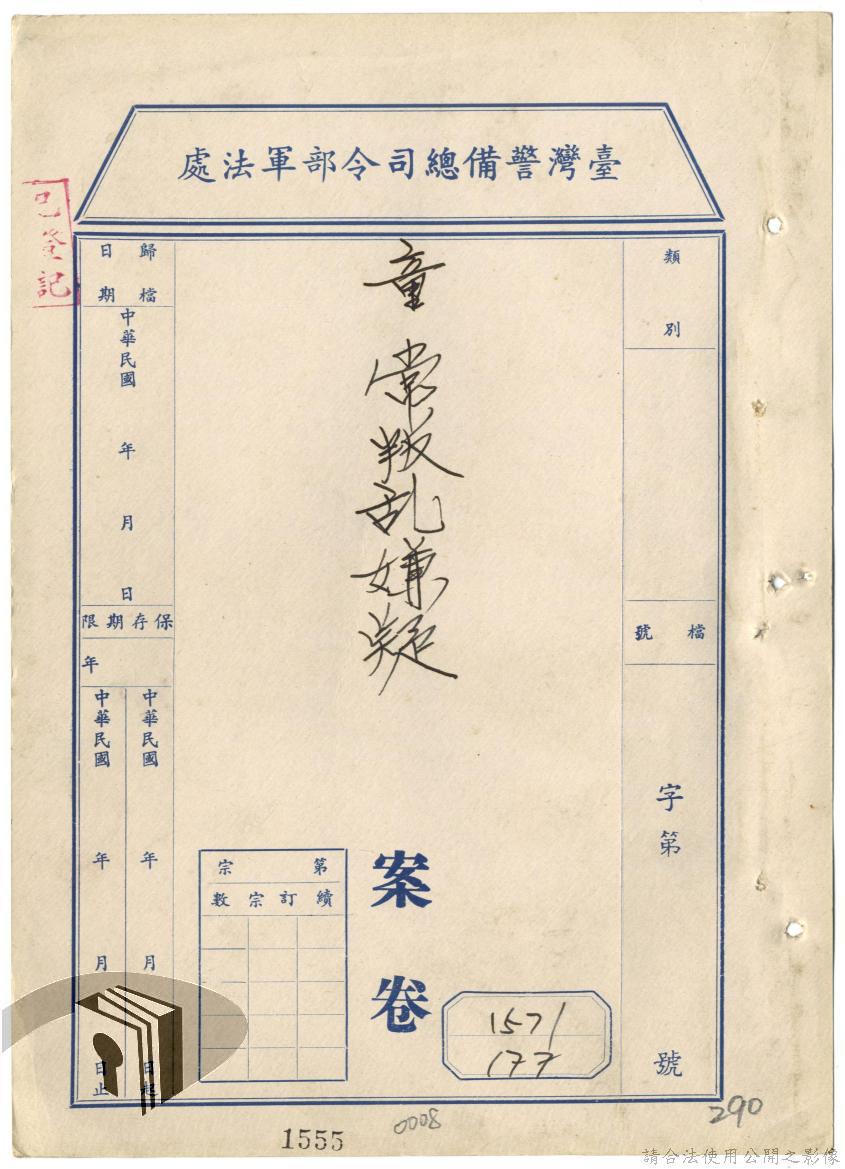 臺灣警備總司令部軍法處
已登記
類別
檔號
字第
號
童常叛乱嫌疑
案卷
第宗
續訂宗數
1571
177
歸檔日期
中華民國
年
月
日
保存期限
年
中華民國
年
月
日起
中華民國
年
月
日止
1555
0008
290
請合法使用公開之影像